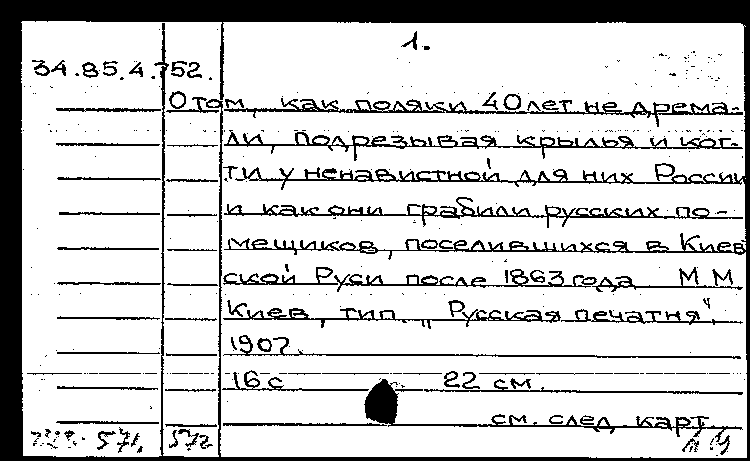 1.
34.85.4.752.
О том, как поляки 40 лет не дрема-
ли, подрезывая крылья и ког-
ти у ненавистной для них России
и как они грабили русских по-
мещиков, поселившихся в Киев
ской Руси после 1863 года М.М.
Киев, тип. „Русская печатня".
1907.
16 с 22 см.
см. след. карт.
571, 572